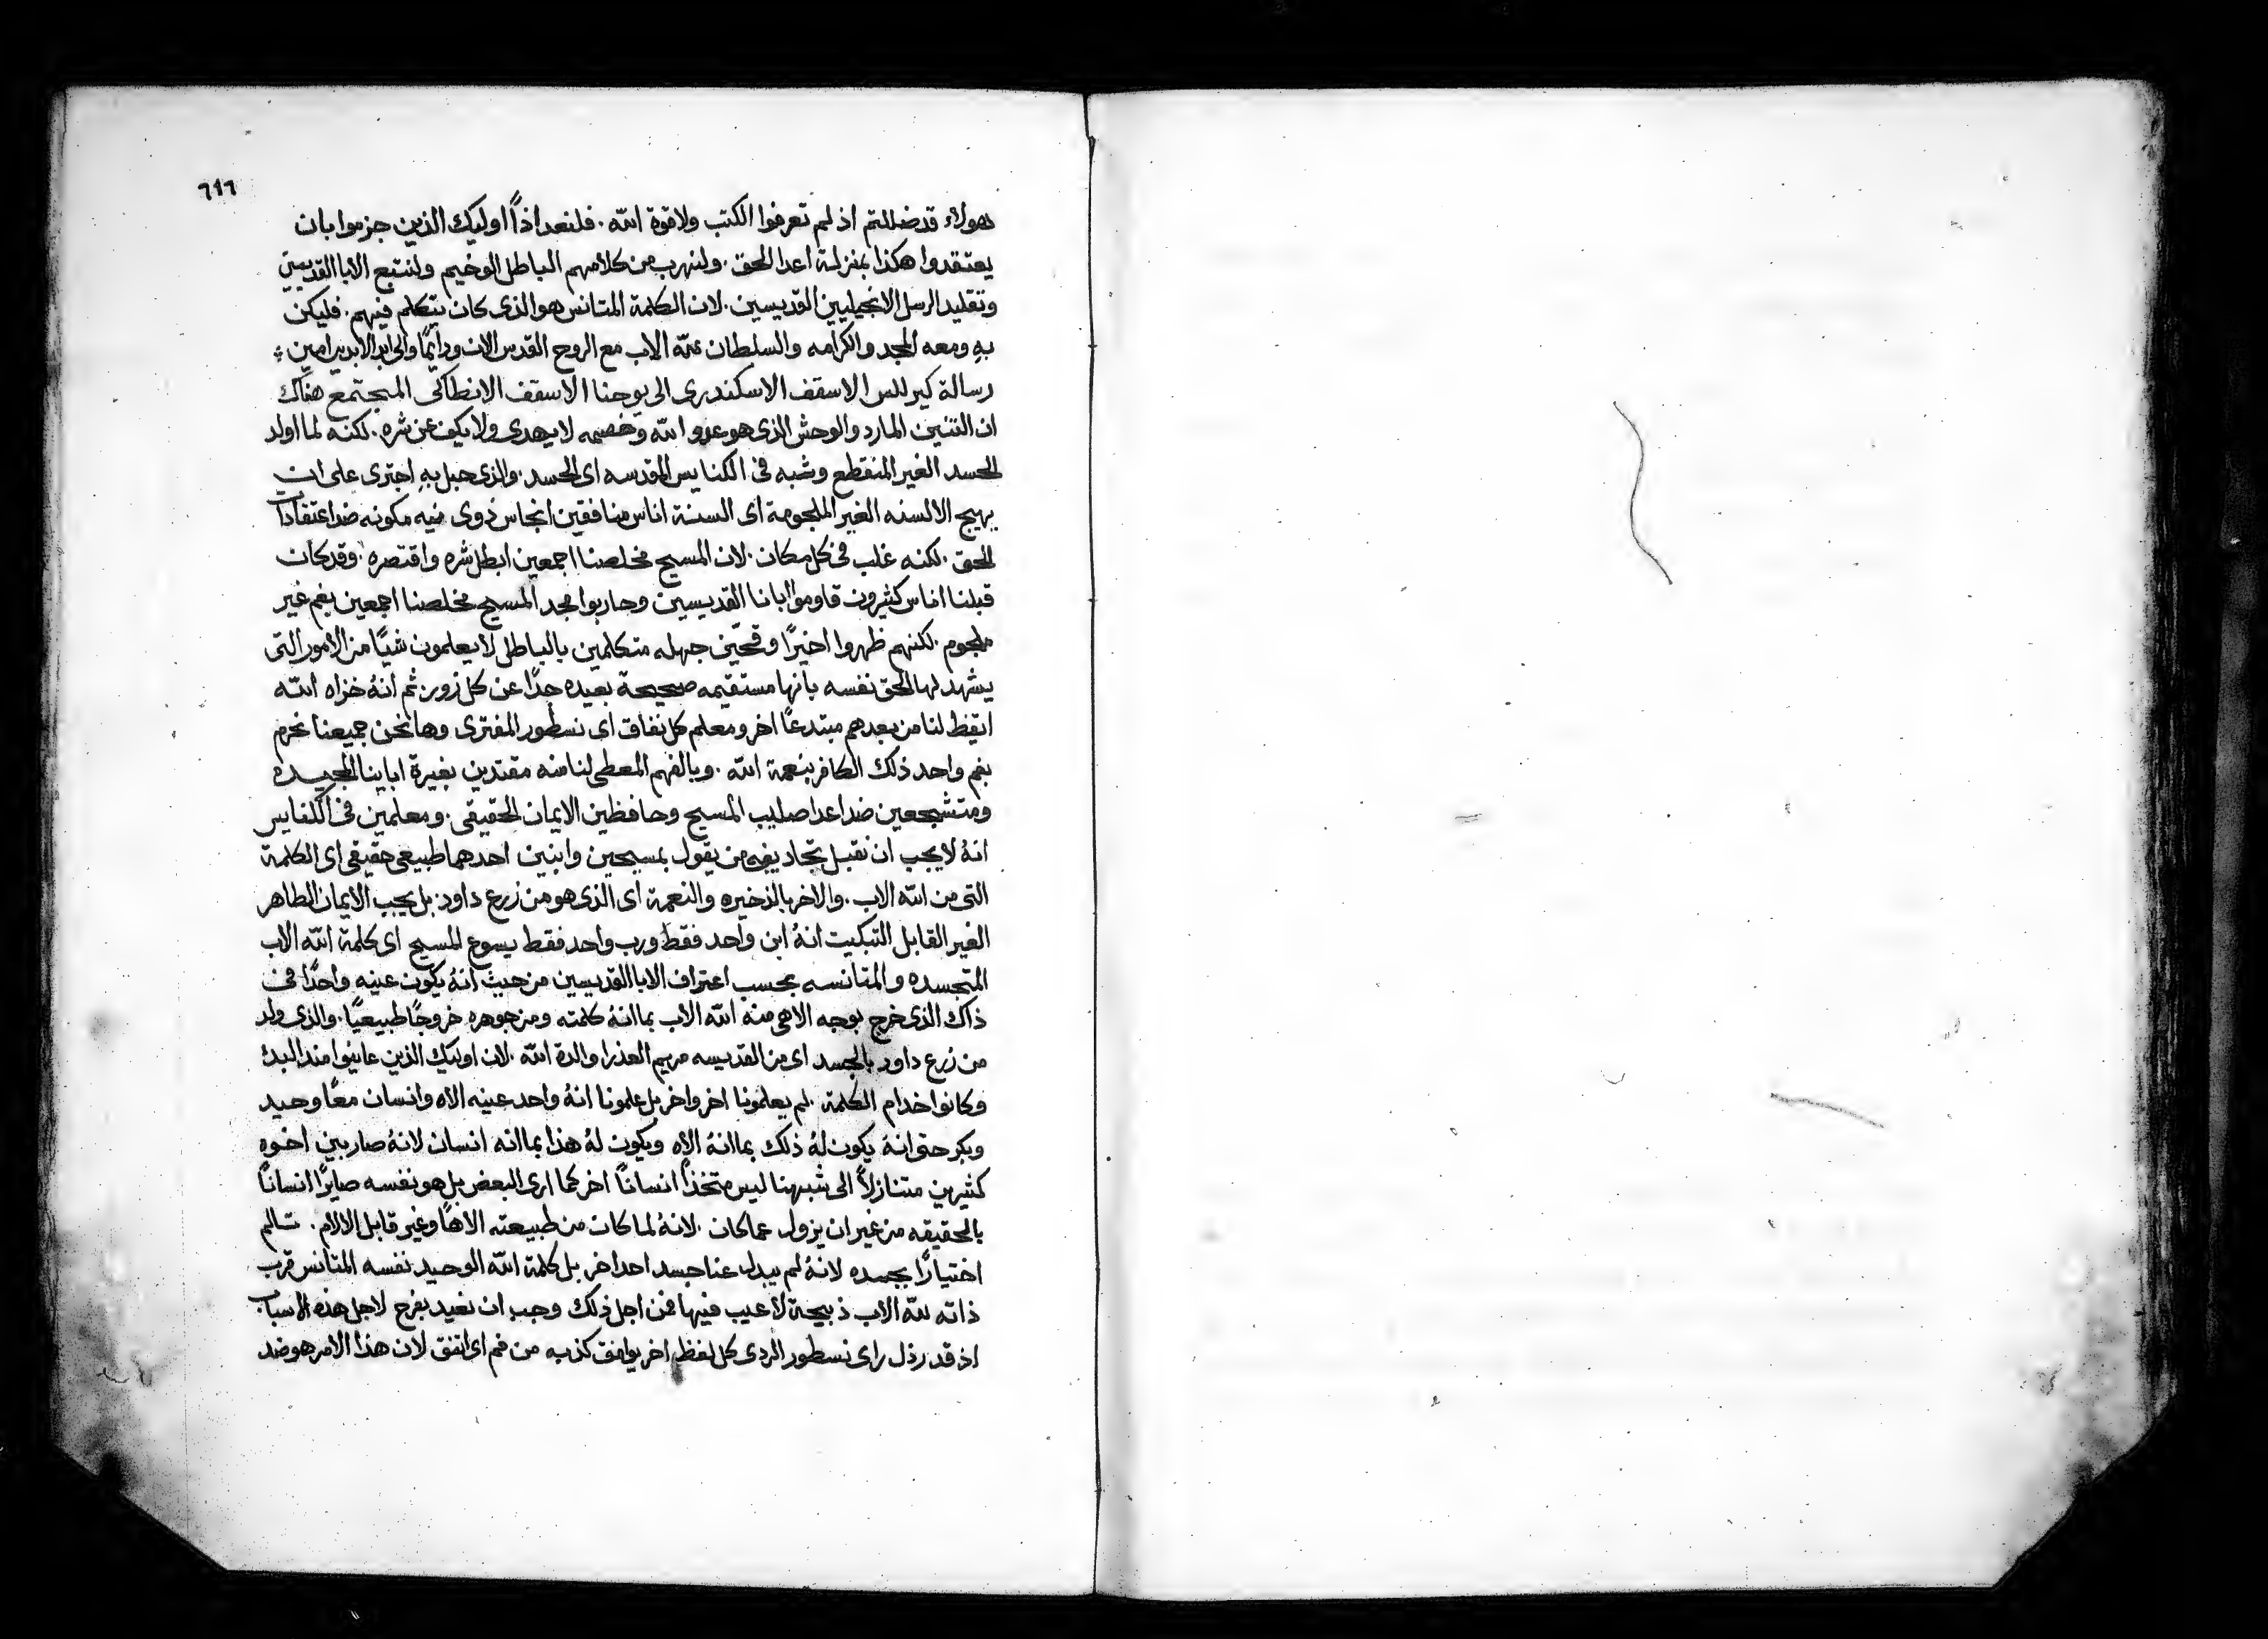 ٦١٦
هولاء قد ضللتم اذ لم تعرفوا الكتب ولا قوة الله . فلنعد اذاً اوليك الذين جزموا بان
يعتقدوا هكذا بمنزلة اعدا الحق . ولنهرب من كلامهم الباطل الوخيم ولنتبع الابا القديسين
وتقليد الرسل الانجيليين القديسين . لان الكلمة المتانس هو الذى كان يتكلم فيهم . فليكن
بهِ ومعه المجد والكرامه والسلطان لله الاب مع الروح القدس الان ودايمًا والى ابد الابدين امين
رسالة كيرللس الاسقف الاسكندرى الى يوحنا الاسقف الانطاكى المجتمع هناك
ان التنين المارد والوحش الذى هو عدو الله وخصمه لا يهدى ولا يكف عن شره . لكنه لما اولد
الحسد الغير المنقطع وشبه فى الكنايس المقدسه اى الحسد . والذى حبل بهِ اجترى على ان
يهيج الالسنه الغير الملجومة اى السنة اناس منافقين انجاس ذوى نيه مكونه ضد اعتقادات
الحق . لكنه غلب فى كل مكان . لان المسيح مخلصنا اجمعين ابطل شره واقتصره . وقد كان
قبلنا اناس كثيرون قاوموا ابانا القديسين وحاربوا مجد المسيح مخلصنا اجمعين بفم غير
ملجوم . لكنهم ظهروا اخيرًا وقحين جهله متكلمين بالباطل لا يعلمون شيًا من الامور التى
يشهد لها الحق نفسه بانها مستقيمه صحيحة بعيده جدًا عن كل زور . ثم انهُ خزاه الله
ايقظ لنا من بعدهم مبتدعًا اخر ومعلم كل نفاق اى نسطور المفترى وها نحن جميعنا نحرم
بفم واحد ذلك الكافر بنعمة الله . وبالفهم المعطى لنا منه مقتدين بغيرة ابأينا المجيده
ومتشجعين ضد اعدا صليب المسيح وحافظين الايمان الحقيقى . ومعلمين فى الكنايس
انهُ لا يجب ان نقبل تجاديف من يقول بمسيحين وابنين احدهما طبيعى حقيقى اى الكلمة
التى من الله الاب . والاخر بالذخيره والنعمة اى الذى هو من زرع داود . بل يجب الايمان الطاهر
الغير القابل التبكيت انهُ ابن واحد فقط ورب واحد فقط يسوع المسيح اى كلمة الله الاب
المتجسده والمتانسه بحسب اعتراف الابا القديسين من حيث انهُ يكون عينه واحدًا فى
ذاك الذى خرج بوجه الاهى منهُ الله الاب بما انهُ كلمته ومن جوهره خروجًا طبيعيًا . والذى ولد
من زرع داود بالجسد اى من القديسه مريم العذرا والدة الله . لان اوليك الذين عاينوا منذ البدء
وكانوا خدام الكلمة . لم يعلمونا اخر واخر بل علمونا انهُ واحد عينه الاه وانسان معًا وحيد
وبكر حتى انهُ يكون لهُ ذلك بما انهُ الاه ويكون لهُ هذا بما انه انسان لانهُ صار بين اخوه
كثيرين متنازلاً الى شبهنا ليس متخذاً انسانًا اخر كما ارى البعض بل هو نفسه صايرًا انسانًا
بالحقيقه من غير ان يزول عما كان . لانهُ لما كان من طبيعته الاهًا وغير قابل الالام . تالم
اختيارًا بجسده لانهُ لم يبدل عنا جسد احد اخر بل كلمة الله الوحيد نفسه المتانس قرب
ذاته لله الاب ذبيحة لا عيب فيها فمن اجل ذلك وجب ان نعيد بفرح لاجل هذه الاسباب
اذ قد رذل راى نسطور الردى كل لفظ اخر يوافق كذبه من فم اى اتفق لان هذا الامر هو ضد